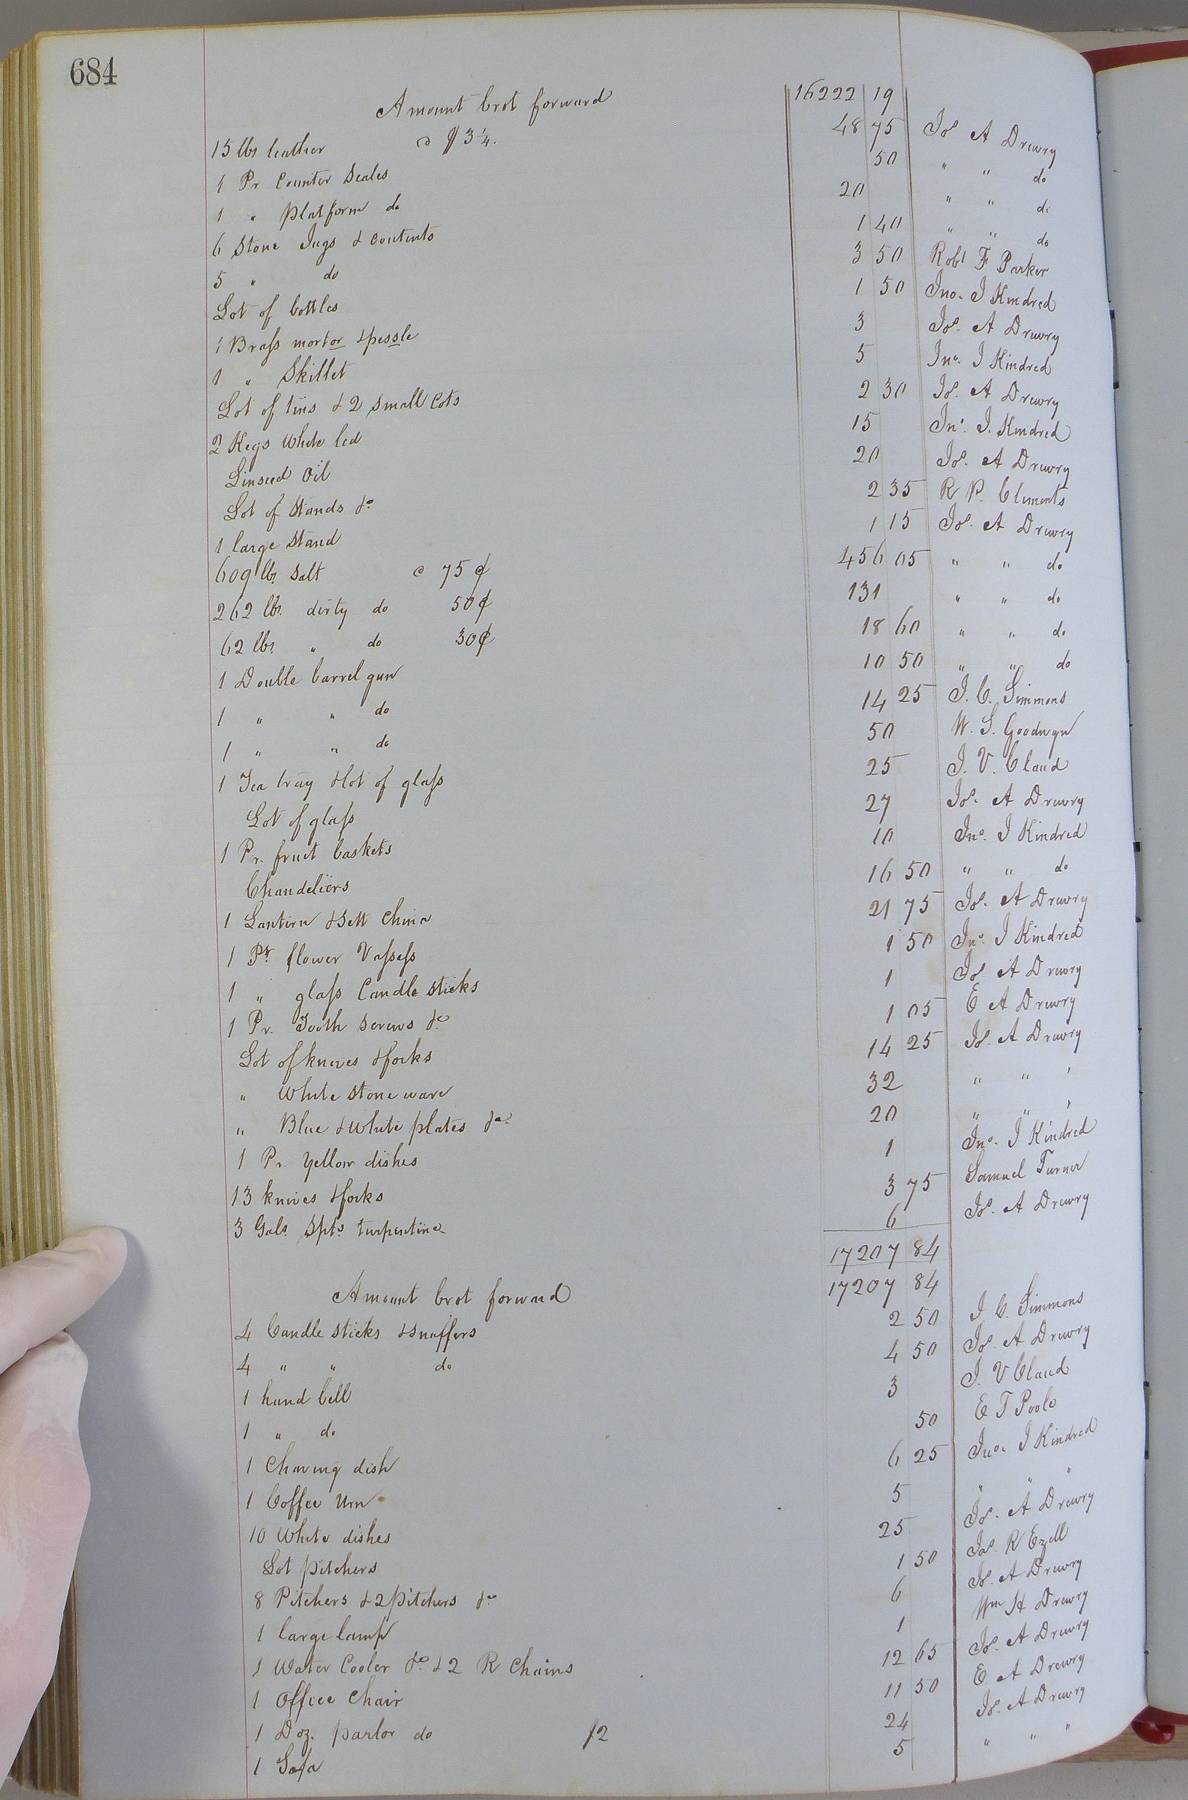 684
Amount brot forward 16222 19
15 lbs leather @ $3¼. 48 75 Jos A Drewry
1 Pr Counter Scales 50 " " do
1 " platform do 20 " " do
6 Stone Jugs & contents 1 40 " " do
5 " do 3 50 Robt F Parker
Lot of bottles 1 50 Jno. J Kindred
1 Brass mortor & pessle 3 Jos. A Drewry
1 " Skillet 5 Jno. J Kindred
Lot of tins & 2 small Cots 2 30 Jos. A Drewry
2 Kegs White led 15 Jno. J. Kindred
Linseed Oil 20 Jos. A Drewry
Lot of Stands &c 2 35 R P. Clements
1 large Stand 1 15 Jos. A Drewry
609 lbs Salt @ 75¢ 456 05 " " do
262 lbs. dirty do 50¢ 131 " " do
62 lbs " do 30¢ 18 60 " " do
1 Double barrel gun 10 50 " " do
1 " " do 14 25 J. C. Simmons
1 " " do 50 W. S. Goodwyn
1 Tea tray & lot of glass 25 J. V. Claud
Lot of glass 27 Jos. A Drewry
1 Pr. fruit baskets 10 Jno. J Kindred
Chandeliers 16 50 " " do
1 Lantern & Sett China 21 75 Jos. A Drewry
1 Pr. flower Vassess 1 50 Jno. J Kindred
1 " glass Candle sticks 1 Jos A Drewry
1 Pr. Tooth Screws &c 1 05 E A Drewry
Lot of knives & forks 14 25 Jos A Drewry
" White Stone ware 32 " " "
" Blue & White plates &c 20 " " "
1 Pr. Yellow dishes 1 Jno. J Kindred
13 knives & forks 3 75 Samuel Turner
3 Gals Spts turpentine 6 Jos. A Drewry
17207 84
Amount brot forward 17207 84
4 Candle sticks & snuffers 2 50 J C. Simmons
4 " " do 4 50 Jos. A Drewry
1 hand bell 3 J. V Claud
1 " do 50 E T Poole
1 Chaving dish 6 25 Jno. J Kindred
1 Coffee Urn 5 " " "
10 White dishes 25 Jos. A Drewry
Lot pitchers 1 50 Jas. R Ezell
8 Pitchers & 2 pitchers &c 6 Jos. A Drewry
1 large lamp 1 Wm H Drewry
1 Water Cooler &c & 2 R Chains 12 65 Jos. A Drewry
1 Office Chair 11 50 E A Drewry
1 Doz. parlor do 12 24 Jos. A Drewry
1 Sofa 5 " " "